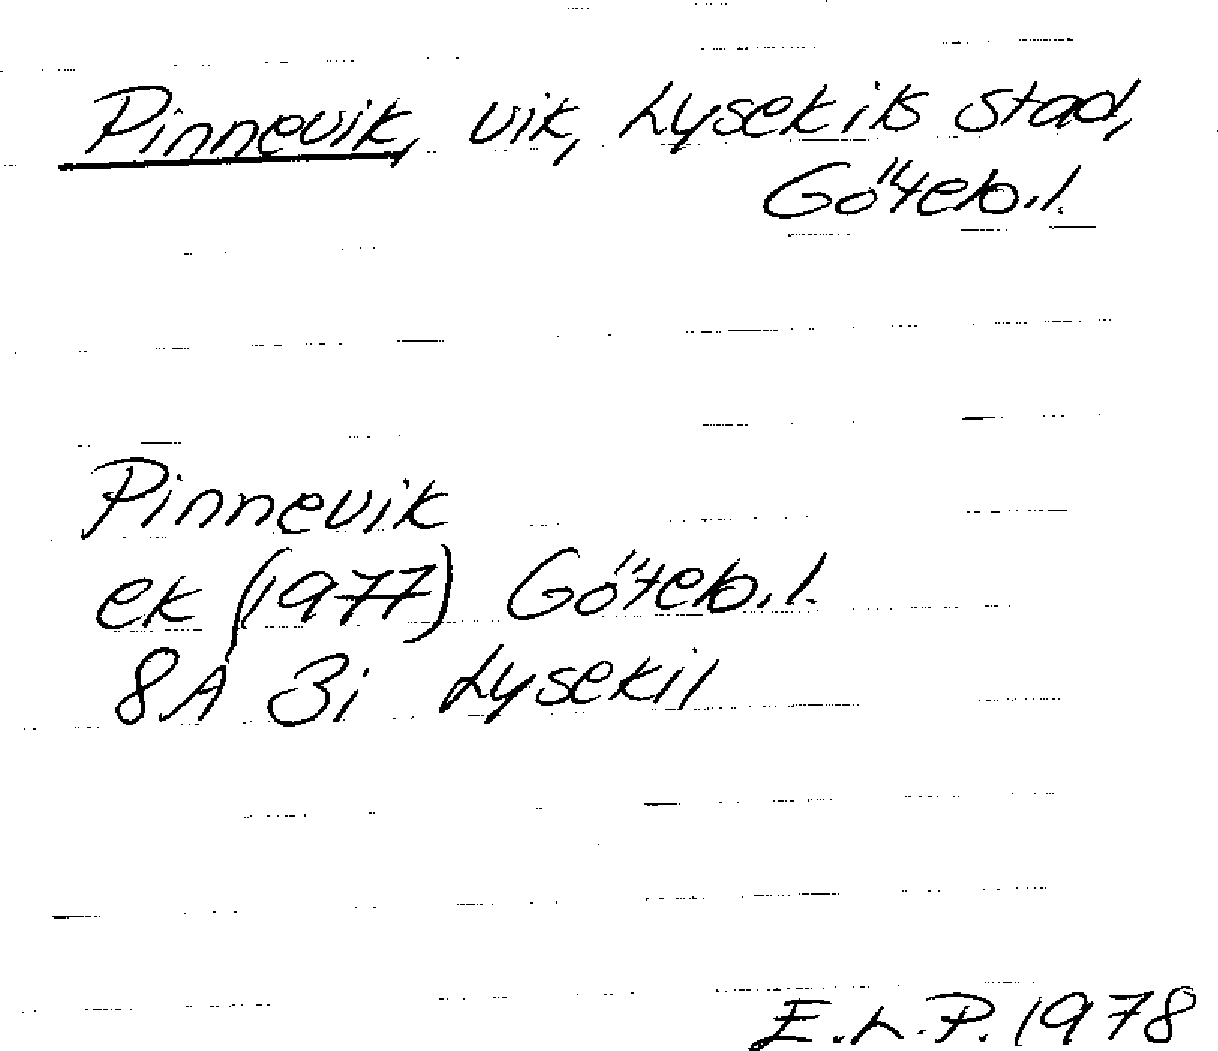 Pinnevik, vik, Lysekils stad,
Göteb.l.
Pinnevik
ek (1977) Göteb.l.
8A 3i Lysekil
E.L.P. 1978